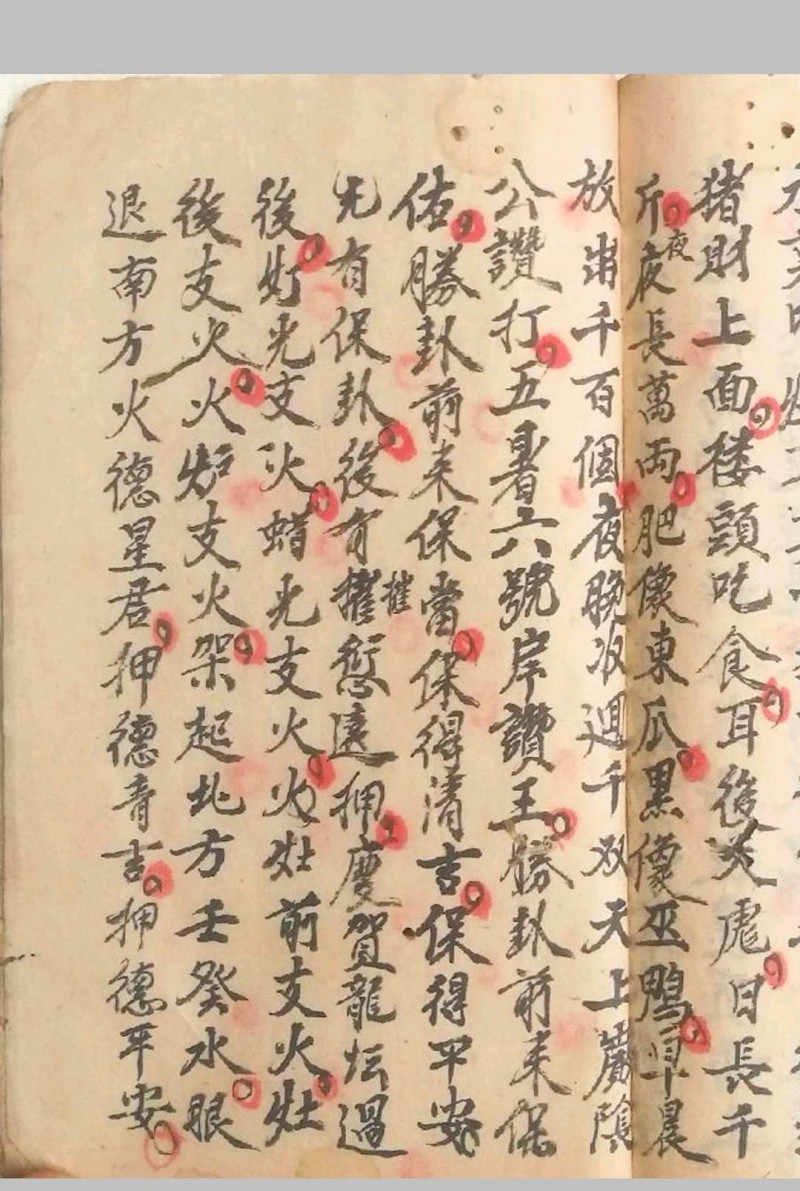 猪財上面㨨頭吃食耳後犬虎日長千
斤夜夜長萬両肥像東瓜黑像巫鴨早晨
放出千百個夜晚収廻千双天上嵗陰
公讚打五暑六號岸讚王勝卦前来保
佑勝卦前来保當保得清吉保得平安
先有保卦後有摧愆遠押慶賀龍坛過
後灯光支火蜡光支火火灶前支火灶
後支火火炉支火架起北方壬癸水眼
退南方火德星君押德清吉押德平安